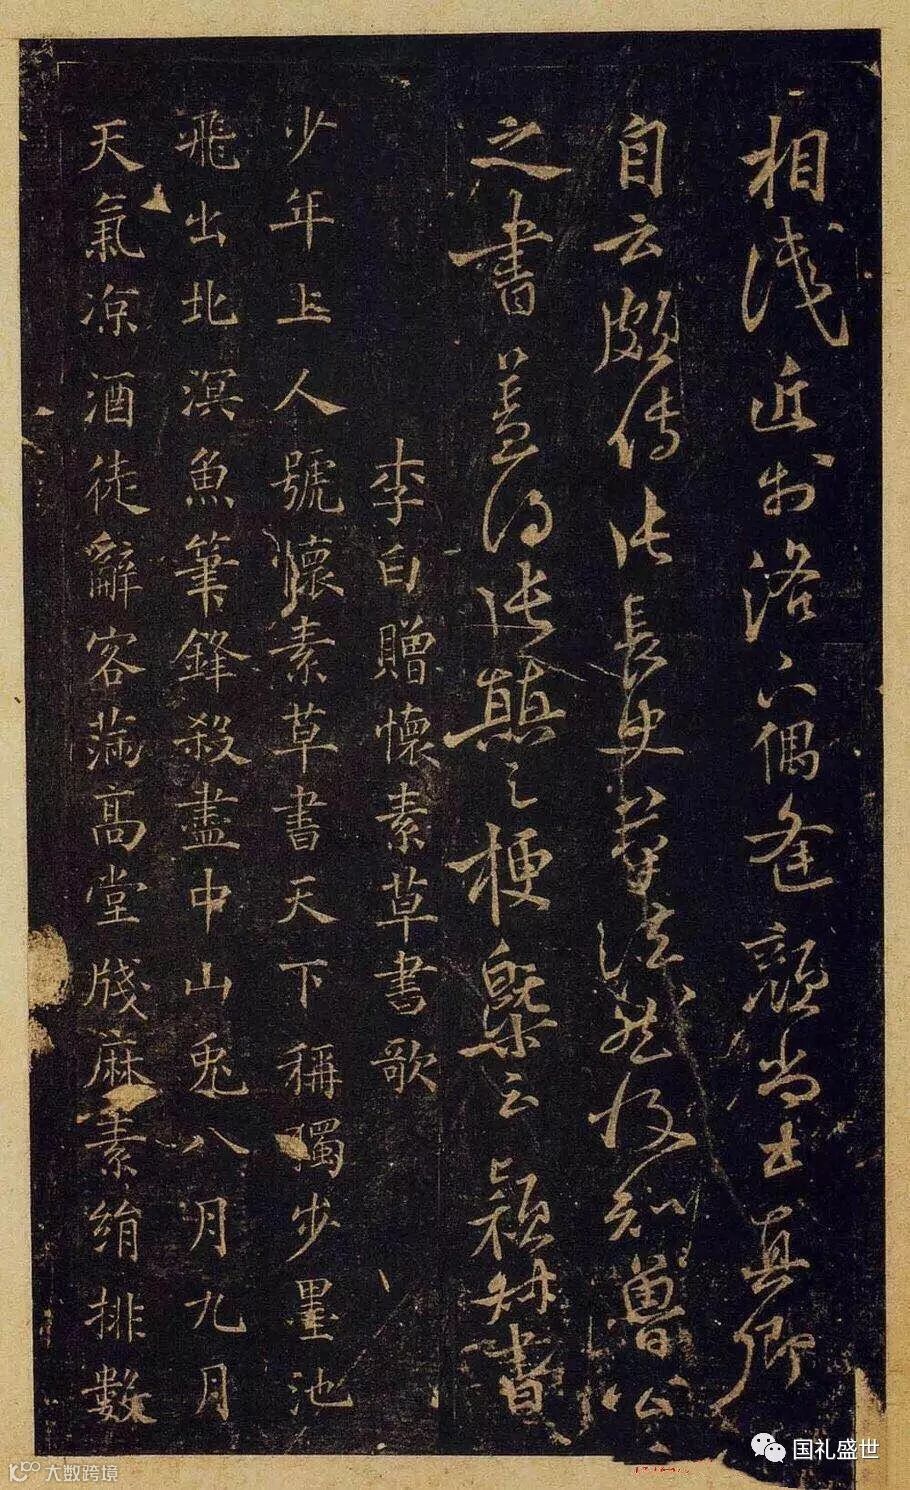 相浅近於洛下偶逢顏尚書真卿
自云頗傳長史筆法然後知魯公
之書蓋得張顛之梗槩云穎叔書
李白贈懷素草書歌
少年上人號懷素草書天下稱獨步墨池
飛出北溟魚筆鋒殺盡中山兔八月九月
天氣凉酒徒辭客滿高堂牋麻素絹排數
国礼盛世
大数跨境